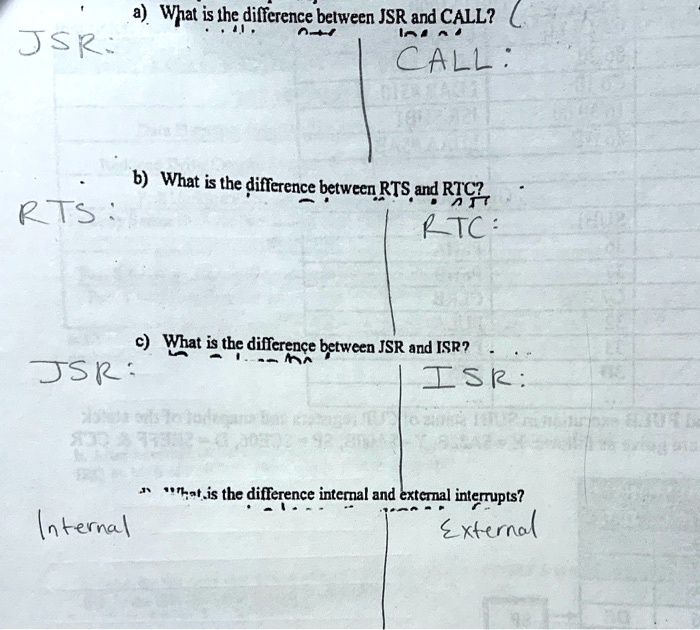 a) What is the difference between JSR and CALL?
JSR:
CALL:
b) What is the difference between RTS and RTC?
RTS:
RTC:
c) What is the difference between JSR and ISR?
JSR:
ISR:
is the difference internal and external interrupts?
Internal
External